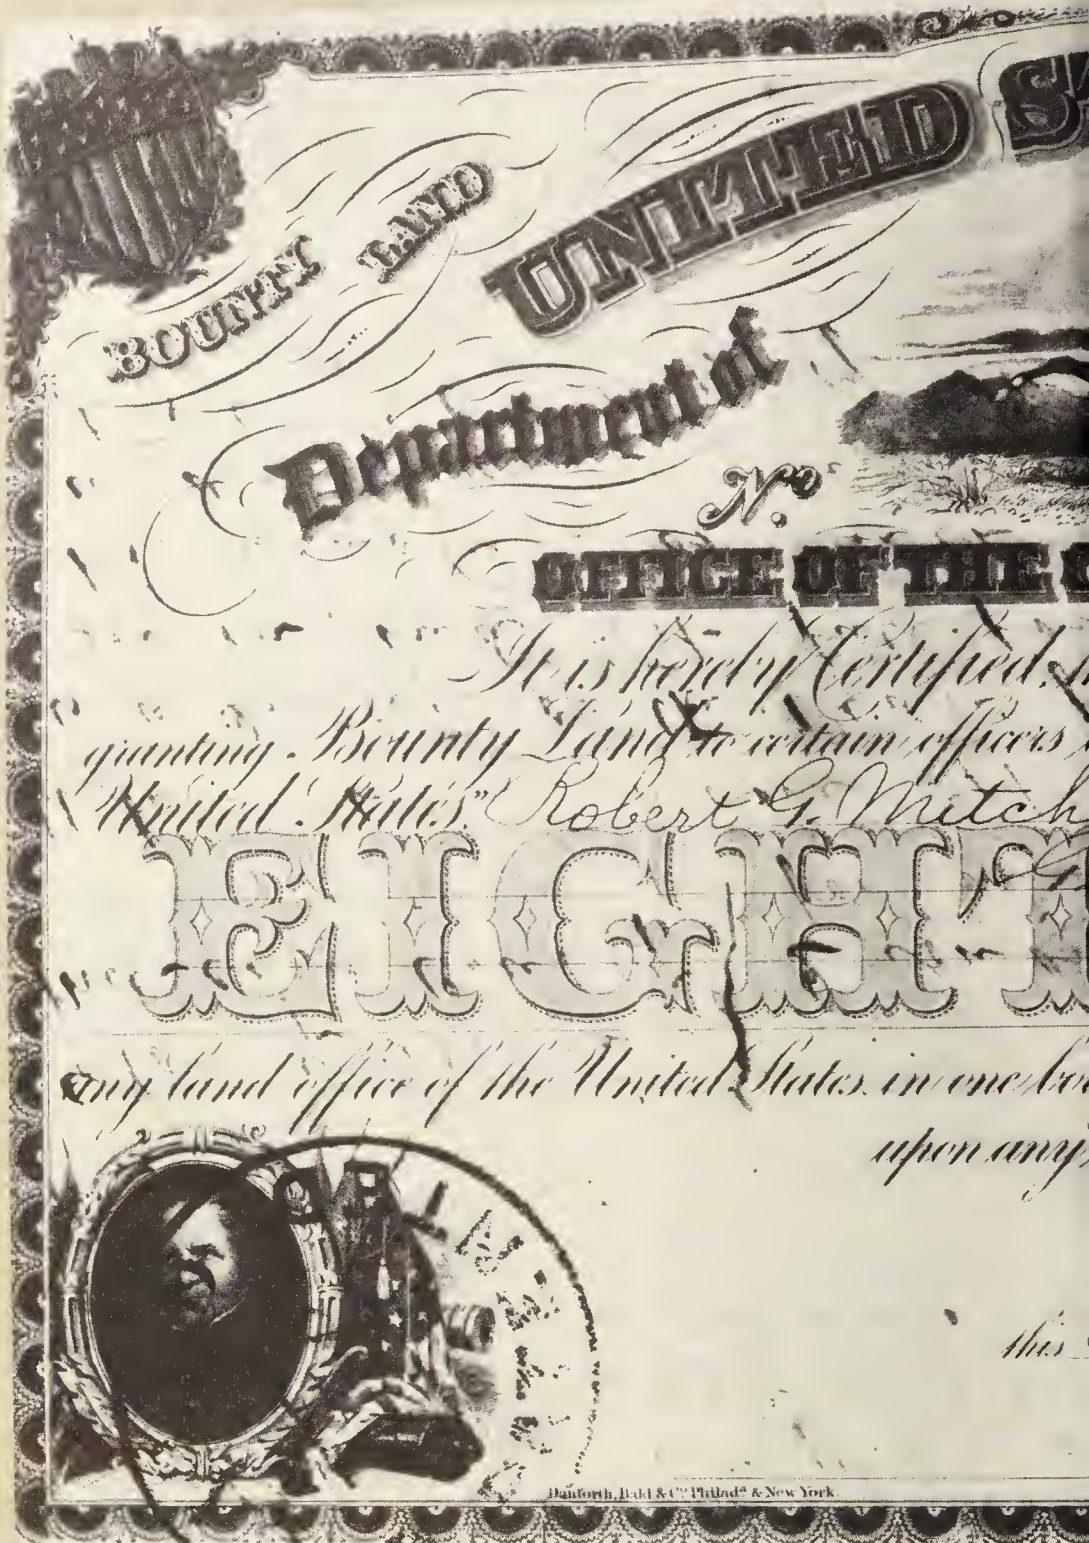 BOUNTY LAND
UNITED
Department of
N.º
OFFICE OF THE
It is hereby Certified,
granting Bounty Land to certain officers
United States," Robert G. Mitch
EIGHT
any land office of the United States, in one
upon any
this
Danforth, Bald & Cº. Philadª. & New York